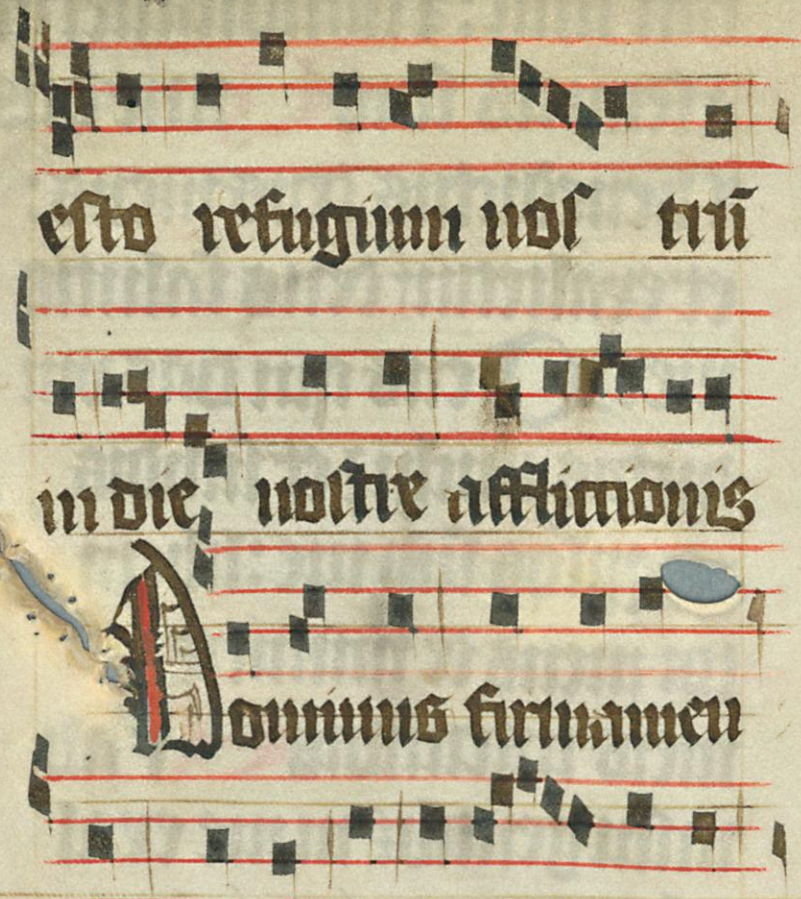 esto refugium nos trū
in die nostre affliccionis
Dominus firmamen